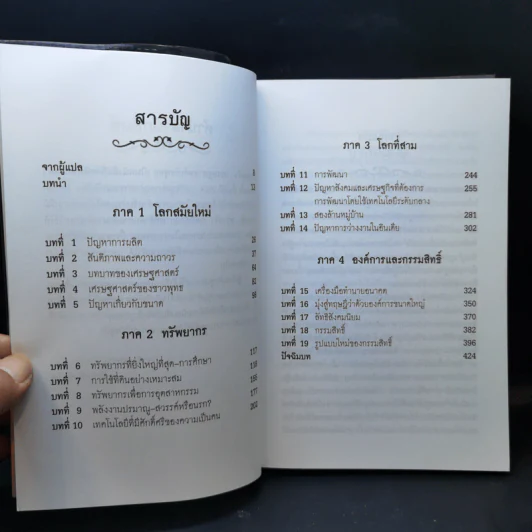 สารบัญ
จากผู้แปล
บทนำ
ภาค 1 โลกสมัยใหม่
บทที่ 1 ปัญหาการผลิต
บทที่ 2 สันติภาพและความถาวร
บทที่ 3 บทบาทของเศรษฐศาสตร์
บทที่ 4 เศรษฐศาสตร์ของชาวพุทธ
บทที่ 5 ปัญหาเกี่ยวกับขนาด
ภาค 2 ทรัพยากร
บทที่ 6 ทรัพยากรที่ยิ่งใหญ่ที่สุด–การศึกษา
บทที่ 7 การใช้ที่ดินอย่างเหมาะสม
บทที่ 8 ทรัพยากรเพื่อการอุตสาหกรรม 177
บทที่ 9 พลังงานปรมาณู–สวรรค์หรือนรก?
บทที่ 10 เทคโนโลยีที่มีศักดิ์ศรีของความเป็นคน 202
ภาค 3 โลกที่สาม
บทที่ 11 การพัฒนา 244
บทที่ 12 ปัญหาสังคมและเศรษฐกิจที่ต้องการ 255
การพัฒนาโดยใช้เทคโนโลยีระดับกลาง
บทที่ 13 สองล้านหมู่บ้าน 281
บทที่ 14 ปัญหาการว่างงานในอินเดีย 302
ภาค 4 องค์การและกรรมสิทธิ์
บทที่ 15 เครื่องมือทำนายอนาคต 324
บทที่ 16 มุ่งสู่ทฤษฎีว่าด้วยองค์การขนาดใหญ่ 350
บทที่ 17 ลัทธิสังคมนิยม 370
บทที่ 18 กรรมสิทธิ์ 382
บทที่ 19 รูปแบบใหม่ของกรรมสิทธิ์ 396
ปัจฉิมบท 424